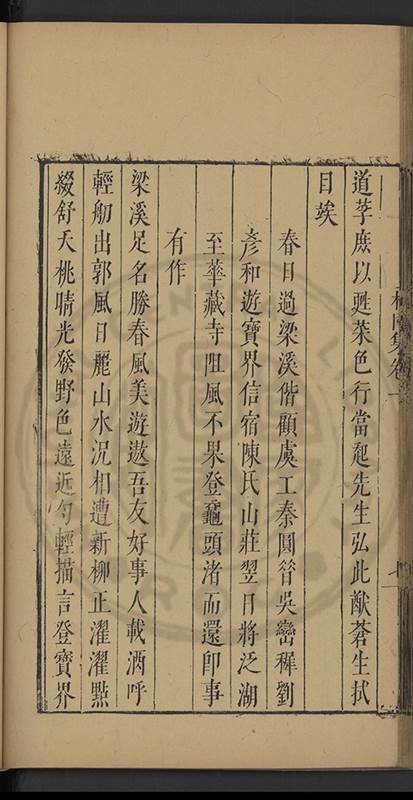 道莩庶以甦菜色行當起先生弘此猷蒼生拭
目竢
春日過梁溪偕顧虞工秦圓晉吳巒穉劉
彥和遊寶界信宿陳氏山莊翌日將泛湖
至華藏寺阻風不果登黿頭渚而還即事
有作
梁溪足名勝春風美遊遨吾友好事人載酒呼
輕舠出郭風日麗山水況相遭新柳正濯濯點
綴舒夭桃晴光發野色遠近勻輕描言登寶界